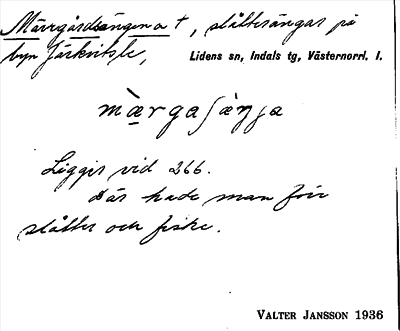 Märrgårdsängena +, slåtterängar på
byn Järkvitsle, Lidens sn, Indals tg, Västernorrl. l.
Ligger vid 266.
där hade man förr
slåtter och fiske.
VALTER JANSSON 1936